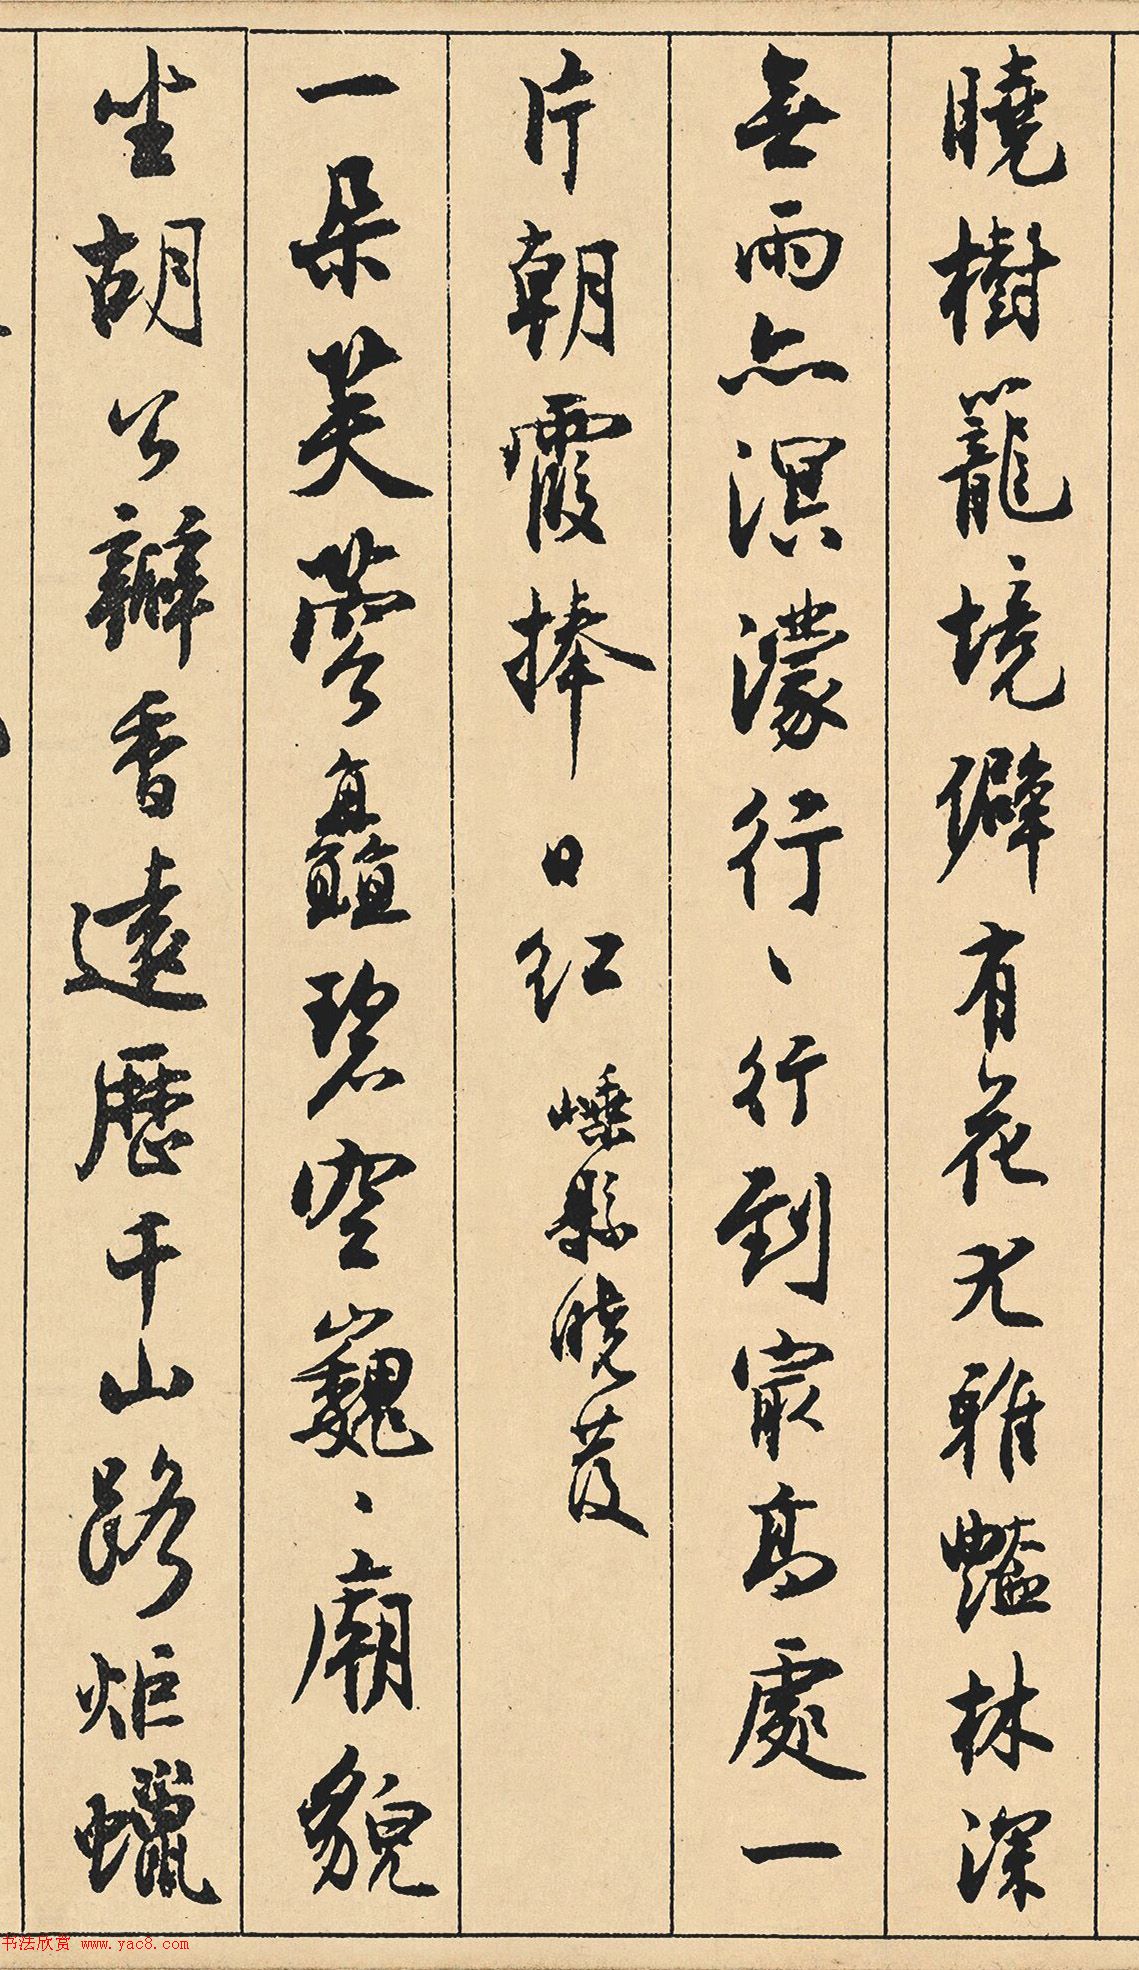 曉樹籠境僻有花尤雅豔林深
無雨亦溟濛行、行到最高處一
片朝霞捧日紅 嵊縣曉發
一朵芙蓉矗碧空巍、廟貌
坐胡公瓣香遠歷千山路炬蠟
书法欣赏 www.yac8.com